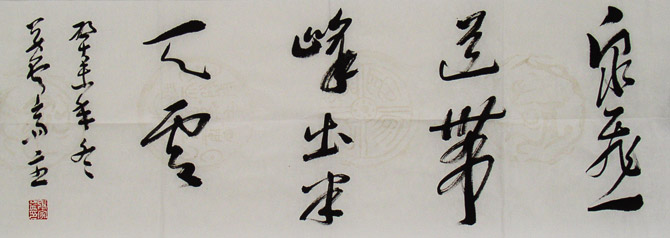 泉飛一
道帶
峰出半
天雲
癸未年冬
齋主